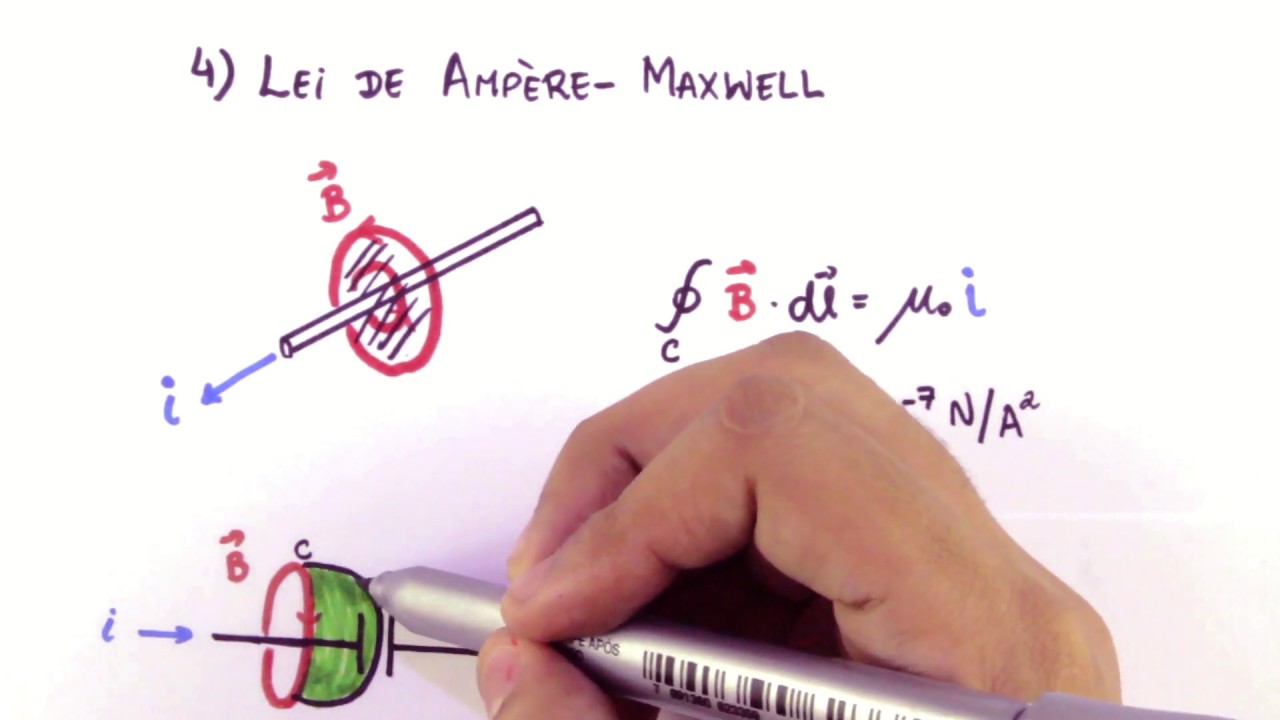 4) LEI DE AMPÈRE-MAXWELL
B⃗
i
∮ B⃗ · dl⃗ = μ₀ i
C
⁻⁷ N/A²
B⃗
C
i →
APÓS